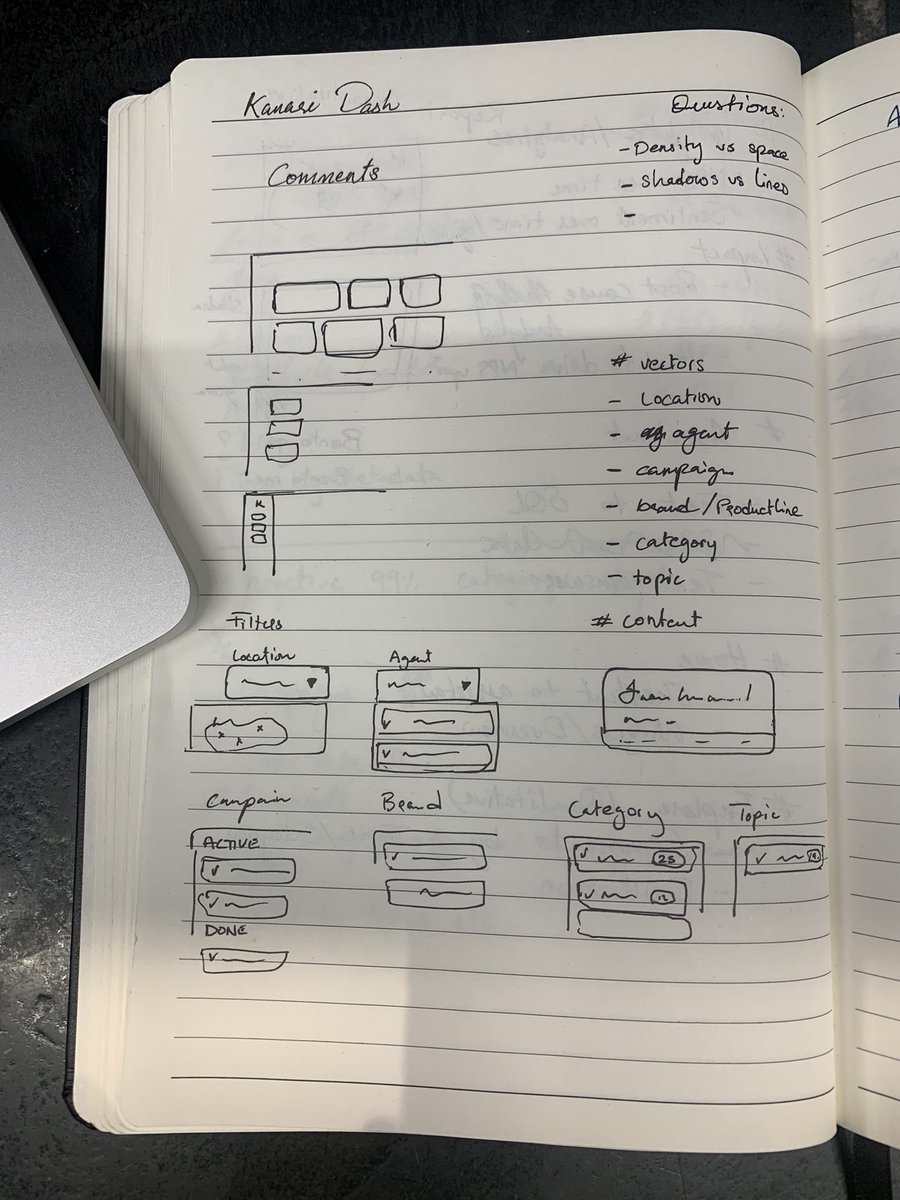 Kanari Dash
Questions:
- Density vs space
- Shadows vs lines
-
Comments
# vectors
- Location
- agent
- campaign
- brand/Productline
- category
- topic
# content
Filters
Location
Agent
Campain
Brand
Category
Topic
ACTIVE
25
12
DONE